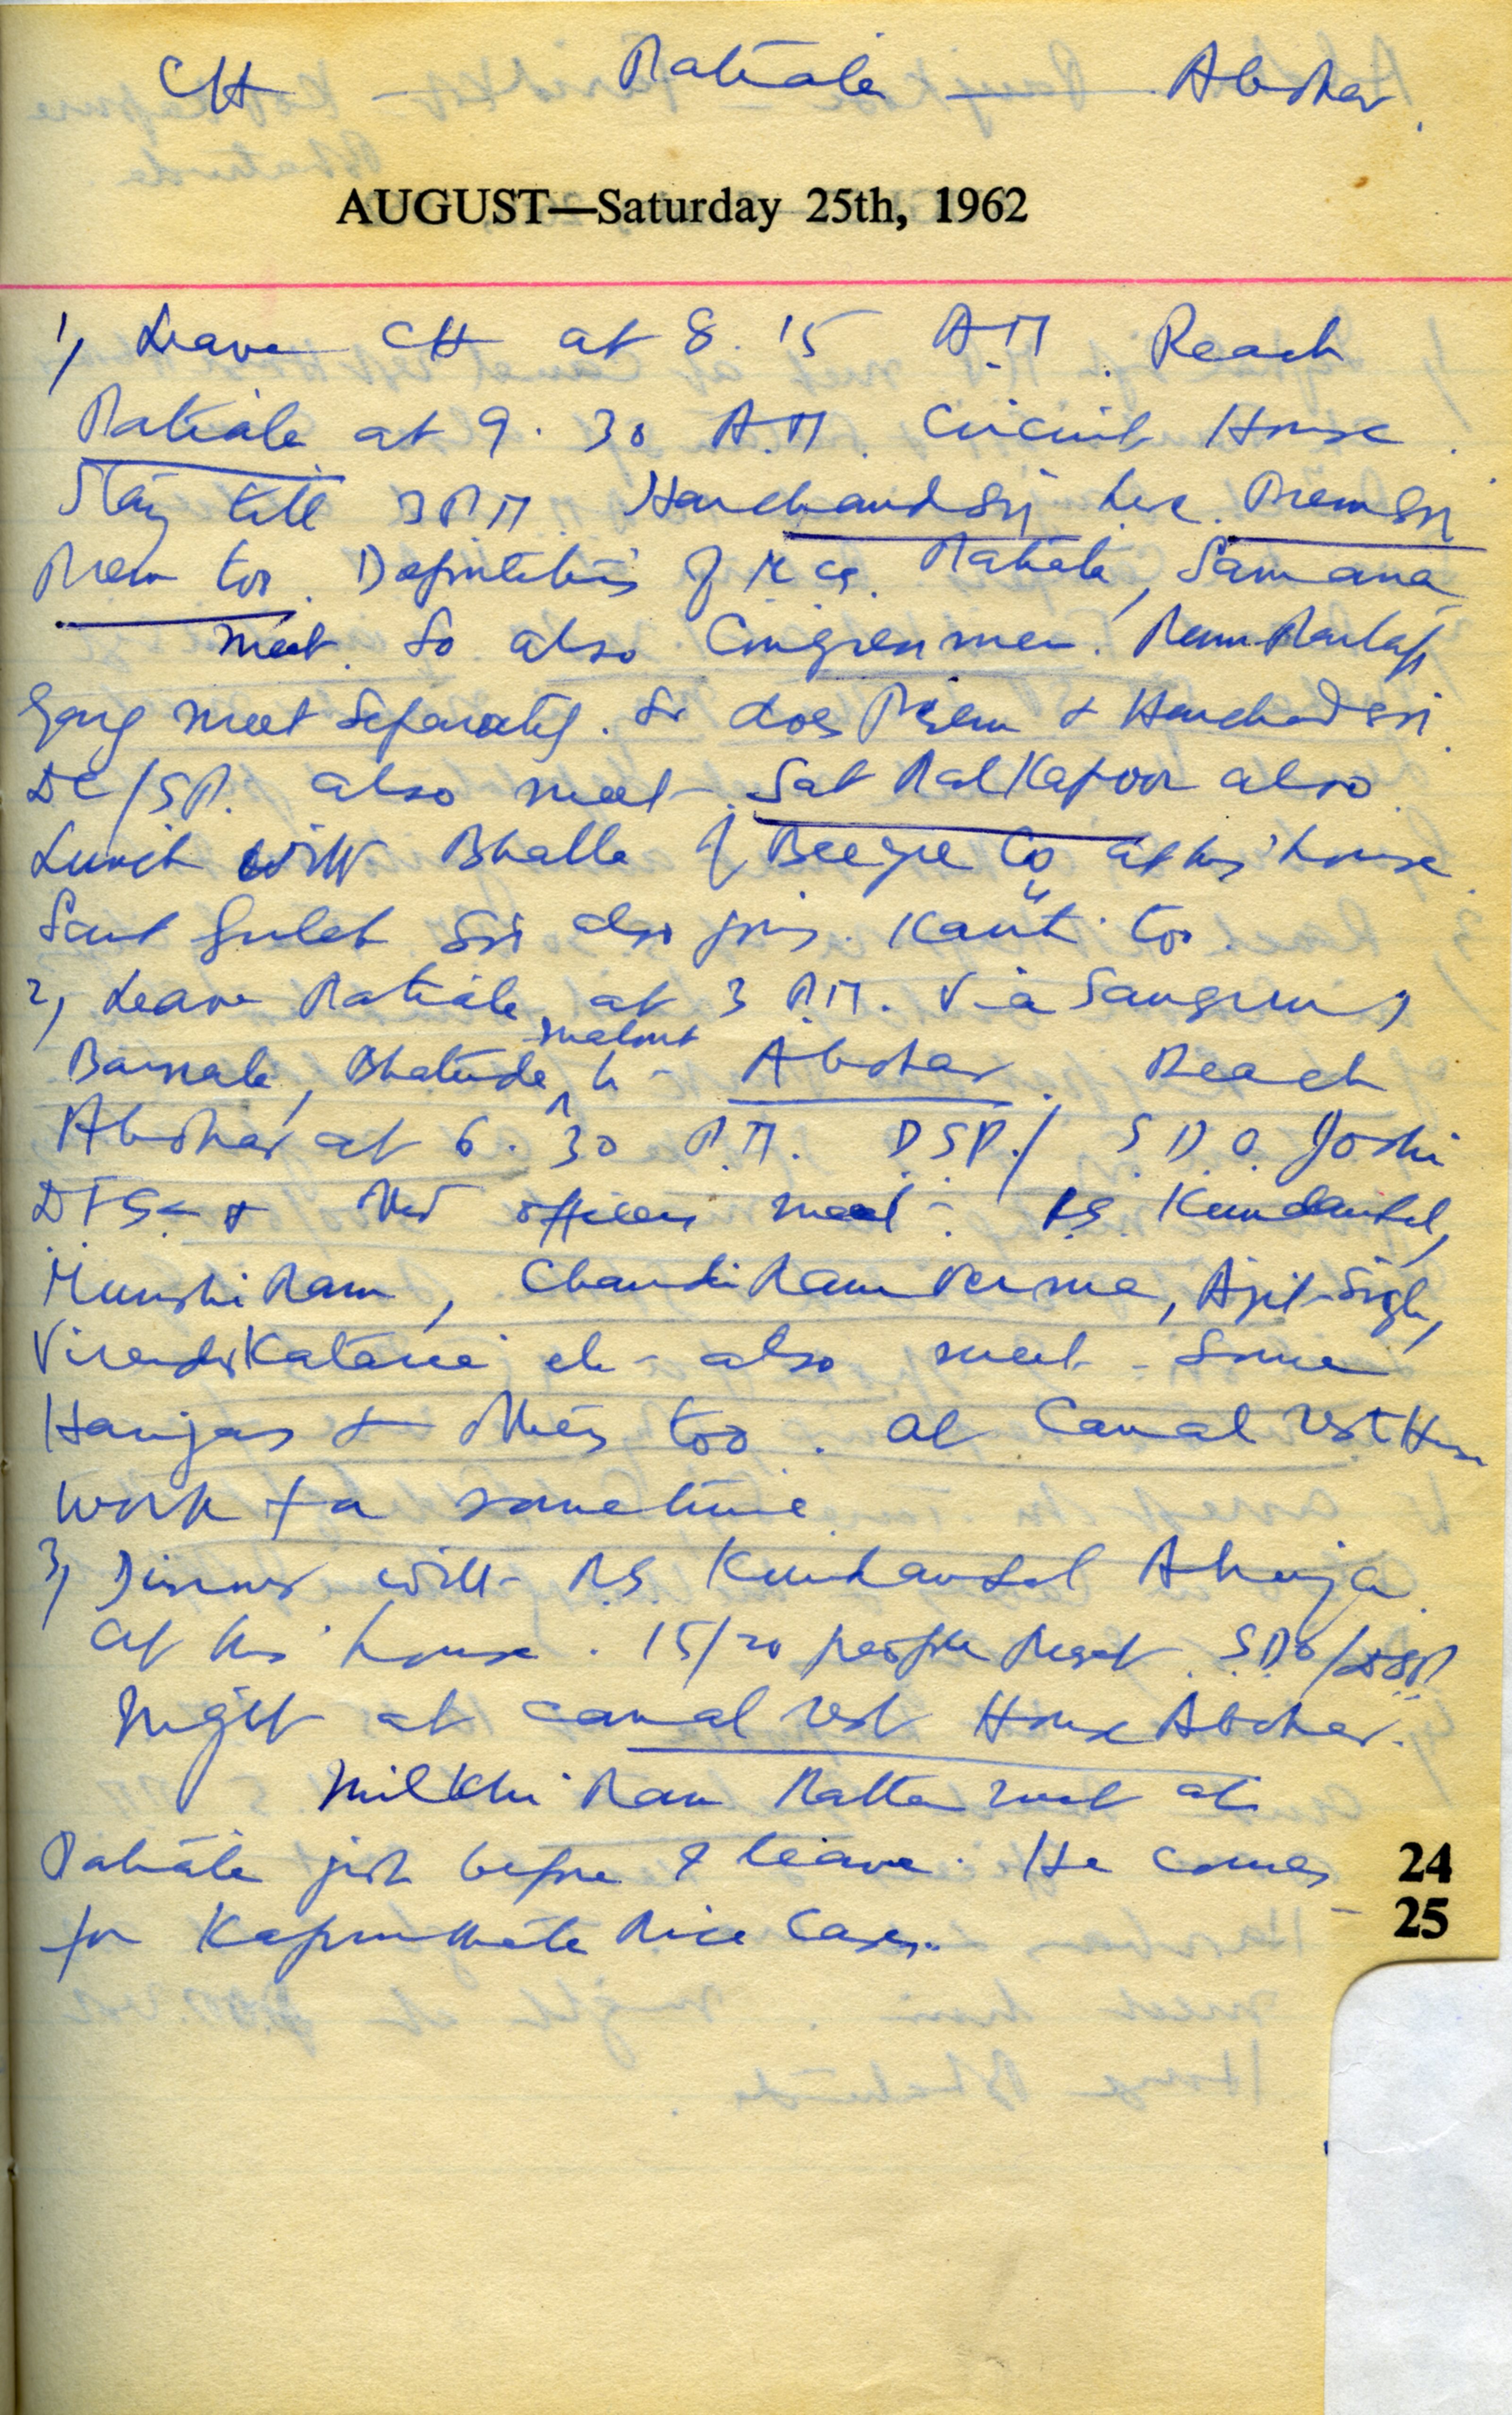 CH — Patiala — Abohar.
AUGUST—Saturday 25th, 1962
1, Leave CH at 8.15 A.M. Reach
Patiala at 9.30 A.M. Circuit House.
Stay till 3 PM. Harchand Sgh here. Prem Sgh
Prem too. Deputations of M.Cs. Patiala, Samana
meet. So also Congressmen.
Garg meet separately. So does Prem & Harchand Sgh.
DC/SP. also meet. Sat Pal Kapoor also.
Lunch with Bhalla of Co at his house.
Sant Gulab Sgh also joins. too.
2, Leave Patiala at 3 P.M. via Sangrur,
Barnala, Bhatinda, malout to Abohar. Reach
Abohar at 6.30 P.M. DSP./S.D.O. Joshi
& officers meet. R.S. Kundanlal,
Munshi Ram, Chandi Ram Verma, Ajit Singh,
Virender Kataria etc also meet. Some
Harijans & others too. at Canal rest House
work for sometime.
3, Dinner with R.S. Kundanlal Ahuja
at his house. 15/20 people present. S.D.O/DSP
Night at canal rest House Abohar.
Milkhi Ram met at
Patiala just before I leave. He comes
for Kapurthala Rice Cases.
24
25